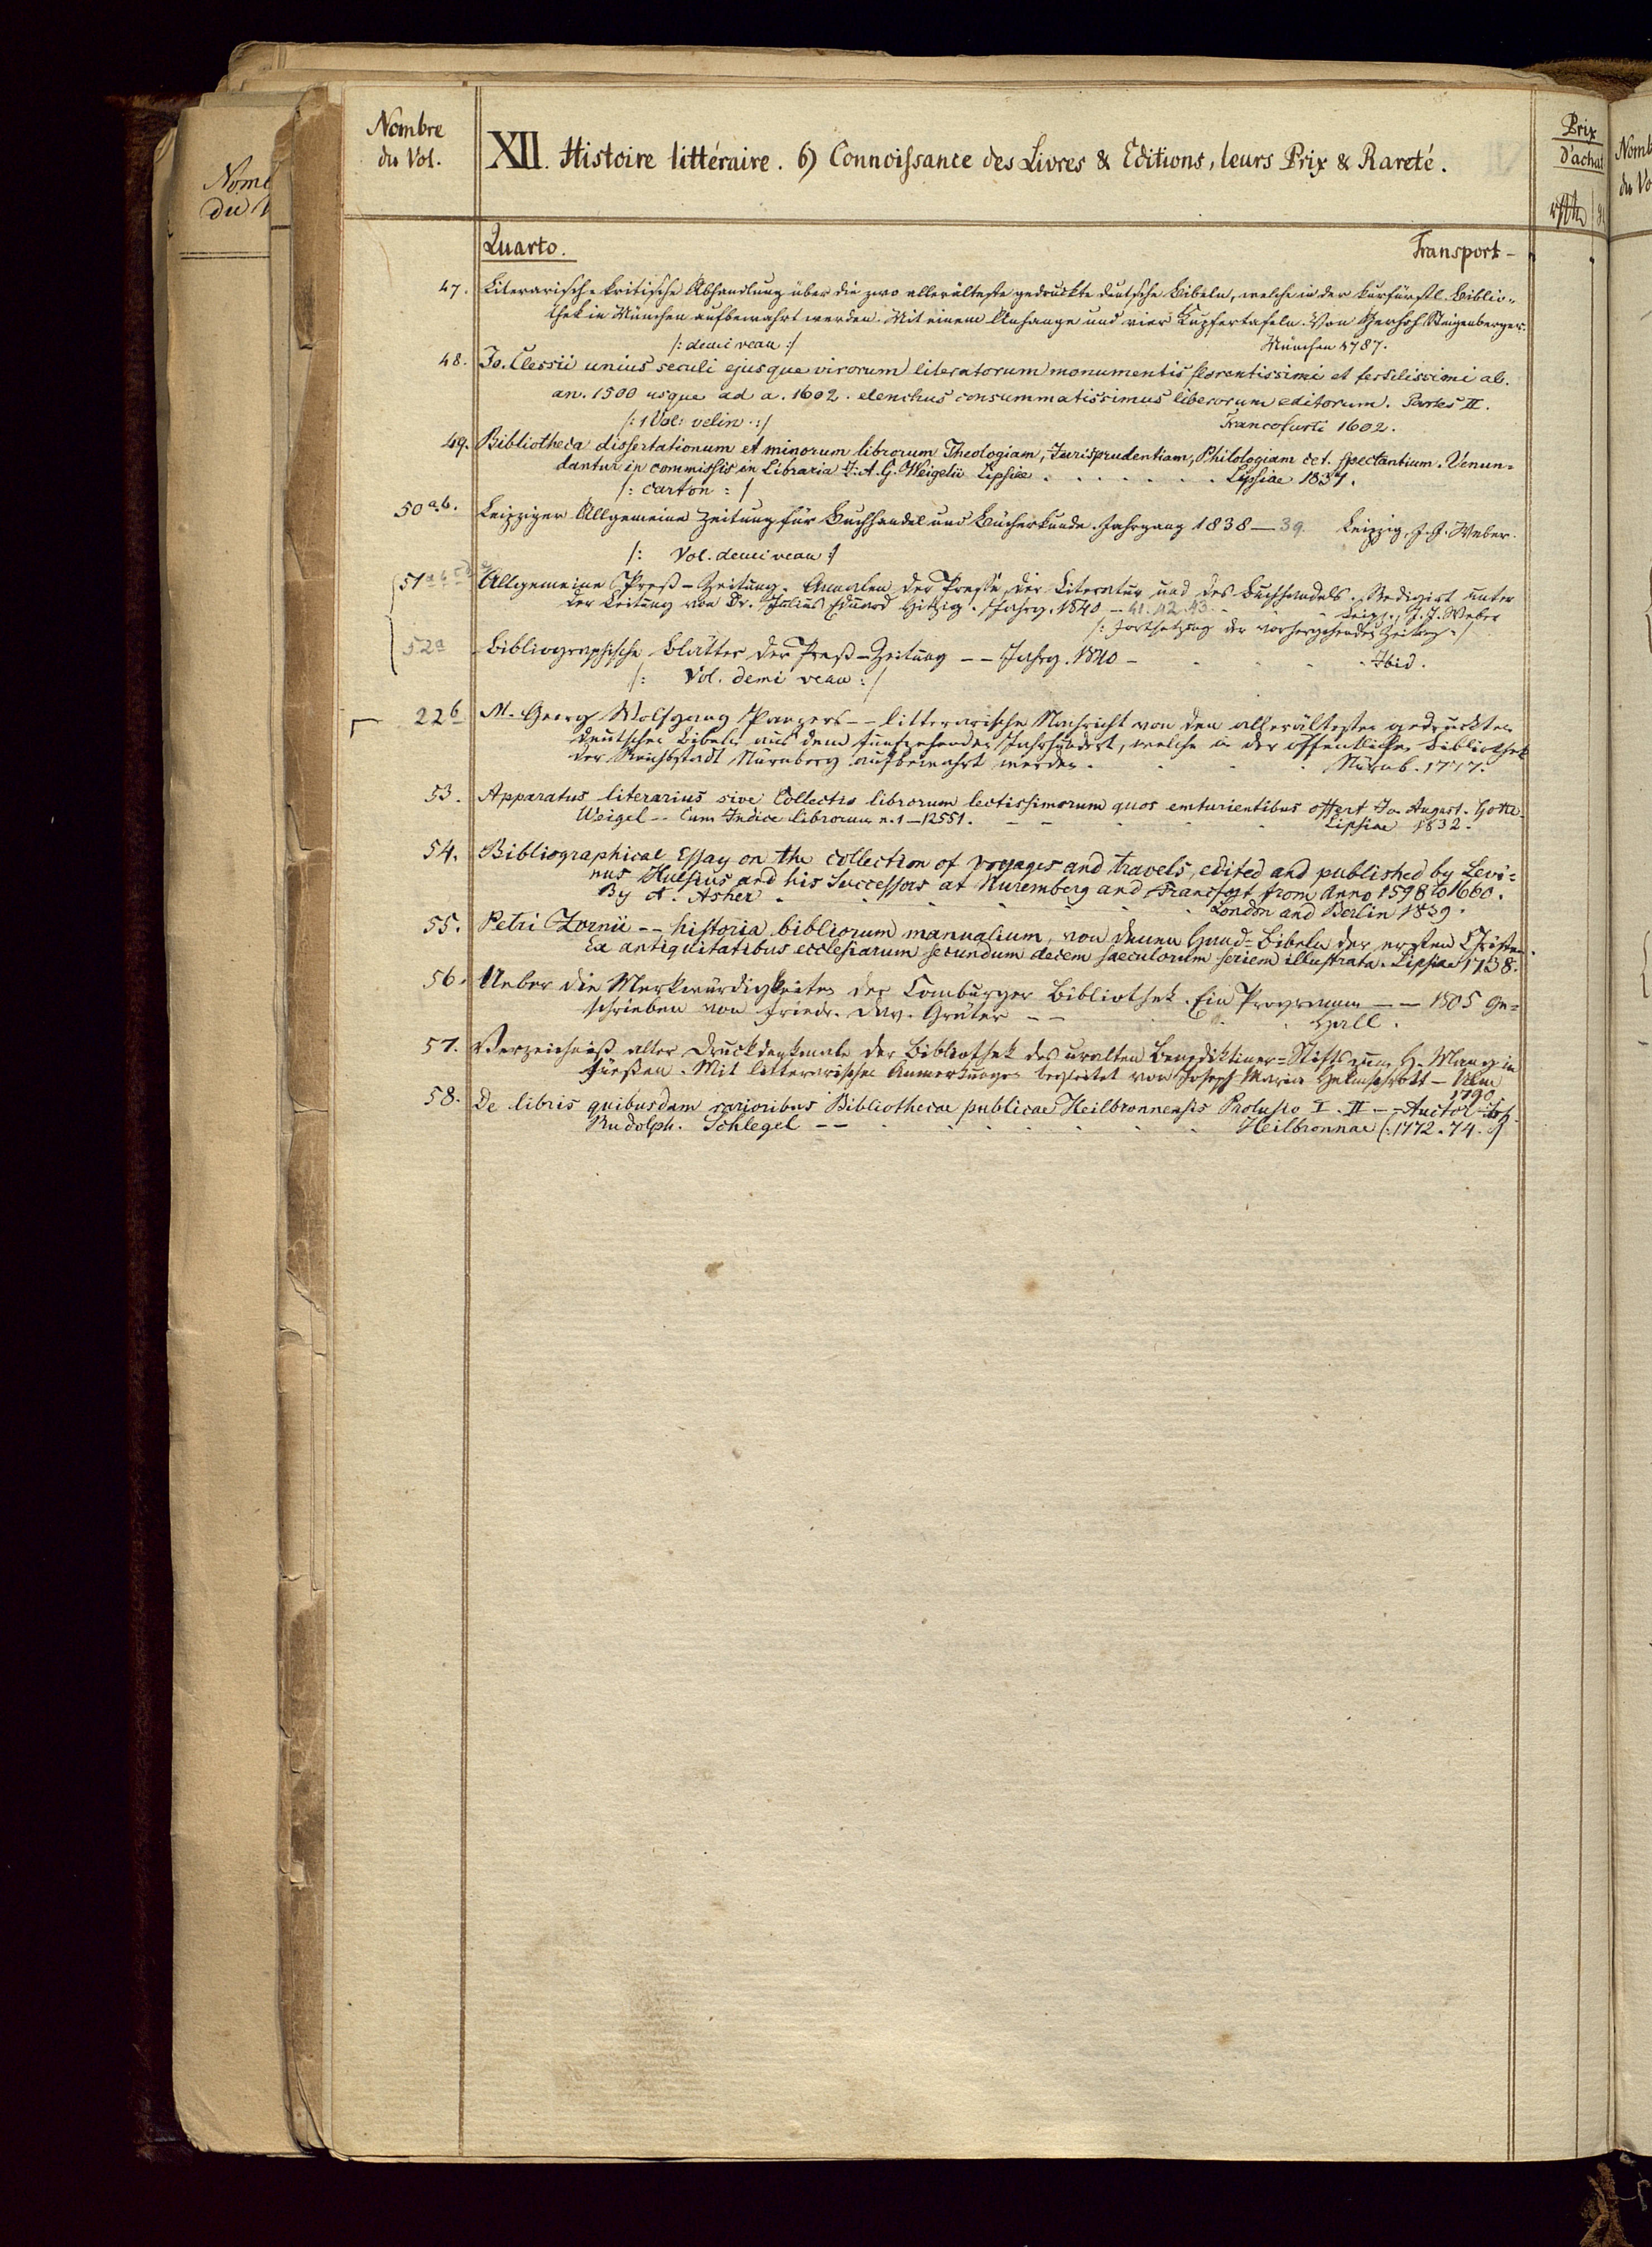 Nombre
du Vol.
XII. Histoire littéraire. 6) Connoissance des Livres & Editions, leurs Prix & Rareté.
Prix
d'achat
Quarto. Transport -
47. Literarisch-kritische Abhandlung über die zwo allerälteste gedruckte deutsche Bibeln, welche in der kurfürstl. Biblio=
thek in München aufbewahrt werden. Mit einem Anhange und vier Kupfertafeln. Von Gerhoh Steigenberger.
/: demi veau :/ München 1787.
48. Jo. Clessii unius seculi ejusque virorum literatorum monumentis florentissimi et fertilissimi ab.
an. 1500 usque ad a. 1602. elenchus consummatissimus librorum editorum. Partes II.
/: 1 Vol: velin :/ Francofurti 1602.
49. Bibliotheca dissertationum et minorum librorum Theologiam, Jurisprudentiam, Philologiam cet. spectantium. Venun=
dantur in commissis in Libraria J. A. G. Weigelii Lipsiae . . . . . . . Lipsiae 1837.
/: carton :/
50 a.b. Leipziger Allgemeine Zeitung für Buchhandel und Bücherkunde. Jahrgang 1838 — 39. Leipzig, J. J. Weber.
/: Vol. demi veau :/
51 a b c d Allgemeine Preß-Zeitung. Annalen der Presse, der Literatur und des Buchhandels. Redigirt unter
der Leitung von Dr. Julius Eduard Hitzig. Jahrg. 1840 - 41. 42. 43. - - Leipz., J. J. Weber
/: Fortsetzung der vorhergehenden Zeitung :/
52 a Bibliographische Blätter der Preß-Zeitung -- Jahrg. 1840 - . . . . Ibid.
/: Vol. demi veau :/
22 b M. Georg Wolfgang Panzers -- litterarische Nachricht von den allerältesten gedruckten
deutschen Bibeln aus dem funfzehenden Jahrhundert, welche in der öffentlichen Bibliothek
der Reichsstadt Nürnberg aufbewahrt werden. . . . Nürnb. 1777.
53. Apparatus literarius sive Collectio librorum lectissimorum quos emturientibus offert Jo. August. Gottl.
Weigel -- Cum Indice librorum n. 1 — 12551. - - . . . Lipsiae 1832.
54. Bibliographical Essay on the collection of voyages and travels, edited and published by Levi=
nus Hulsius and his Successors at Nuremberg and Francfort from Anno 1598 to 1660.
By A. Asher . . . . . . London and Berlin 1839.
55. Petri Zornii -- historia bibliorum manualium, von denen Hand-Bibeln der ersten Christen.
Ex antiquitatibus ecclesiarum secundum decem saeculorum seriem illustrata. Lipsiae 1738.
56. Ueber die Merkwürdigkeiten der Comburger Bibliothek. Ein Programm -- 1805 ge=
schrieben von Friedr. Dav. Gräter -- . . . Hall.
57. Verzeichniß alter Druckdenkmale der Bibliothek des uralten Benediktiner=Stifts zum H. Mang in
Füeßen. Mit litterarischen Anmerkungen begleitet von Joseph Maria Helmschrott - Ulm
1790
58. De libris quibusdam rarioribus Bibliothecae publicae Heilbronnensis Prolusio I. II -- Auctor
Rudolph. Schlegel -- . . . . . . Heilbronnae /: 1772. 74. :/